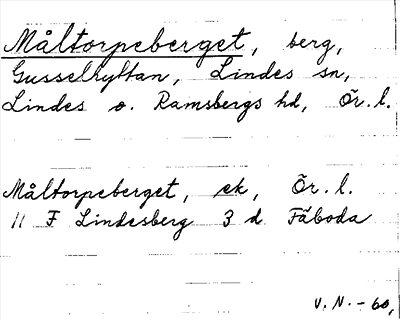 Måltorpeberget, berg,
Gusselhyttan, Lindes sn,
Lindes o. Ramsbergs hd, Ör. l.
Måltorpeberget, ek, Ör. l.
11 F Lindesberg 3 d Fäboda
V. N. -60,